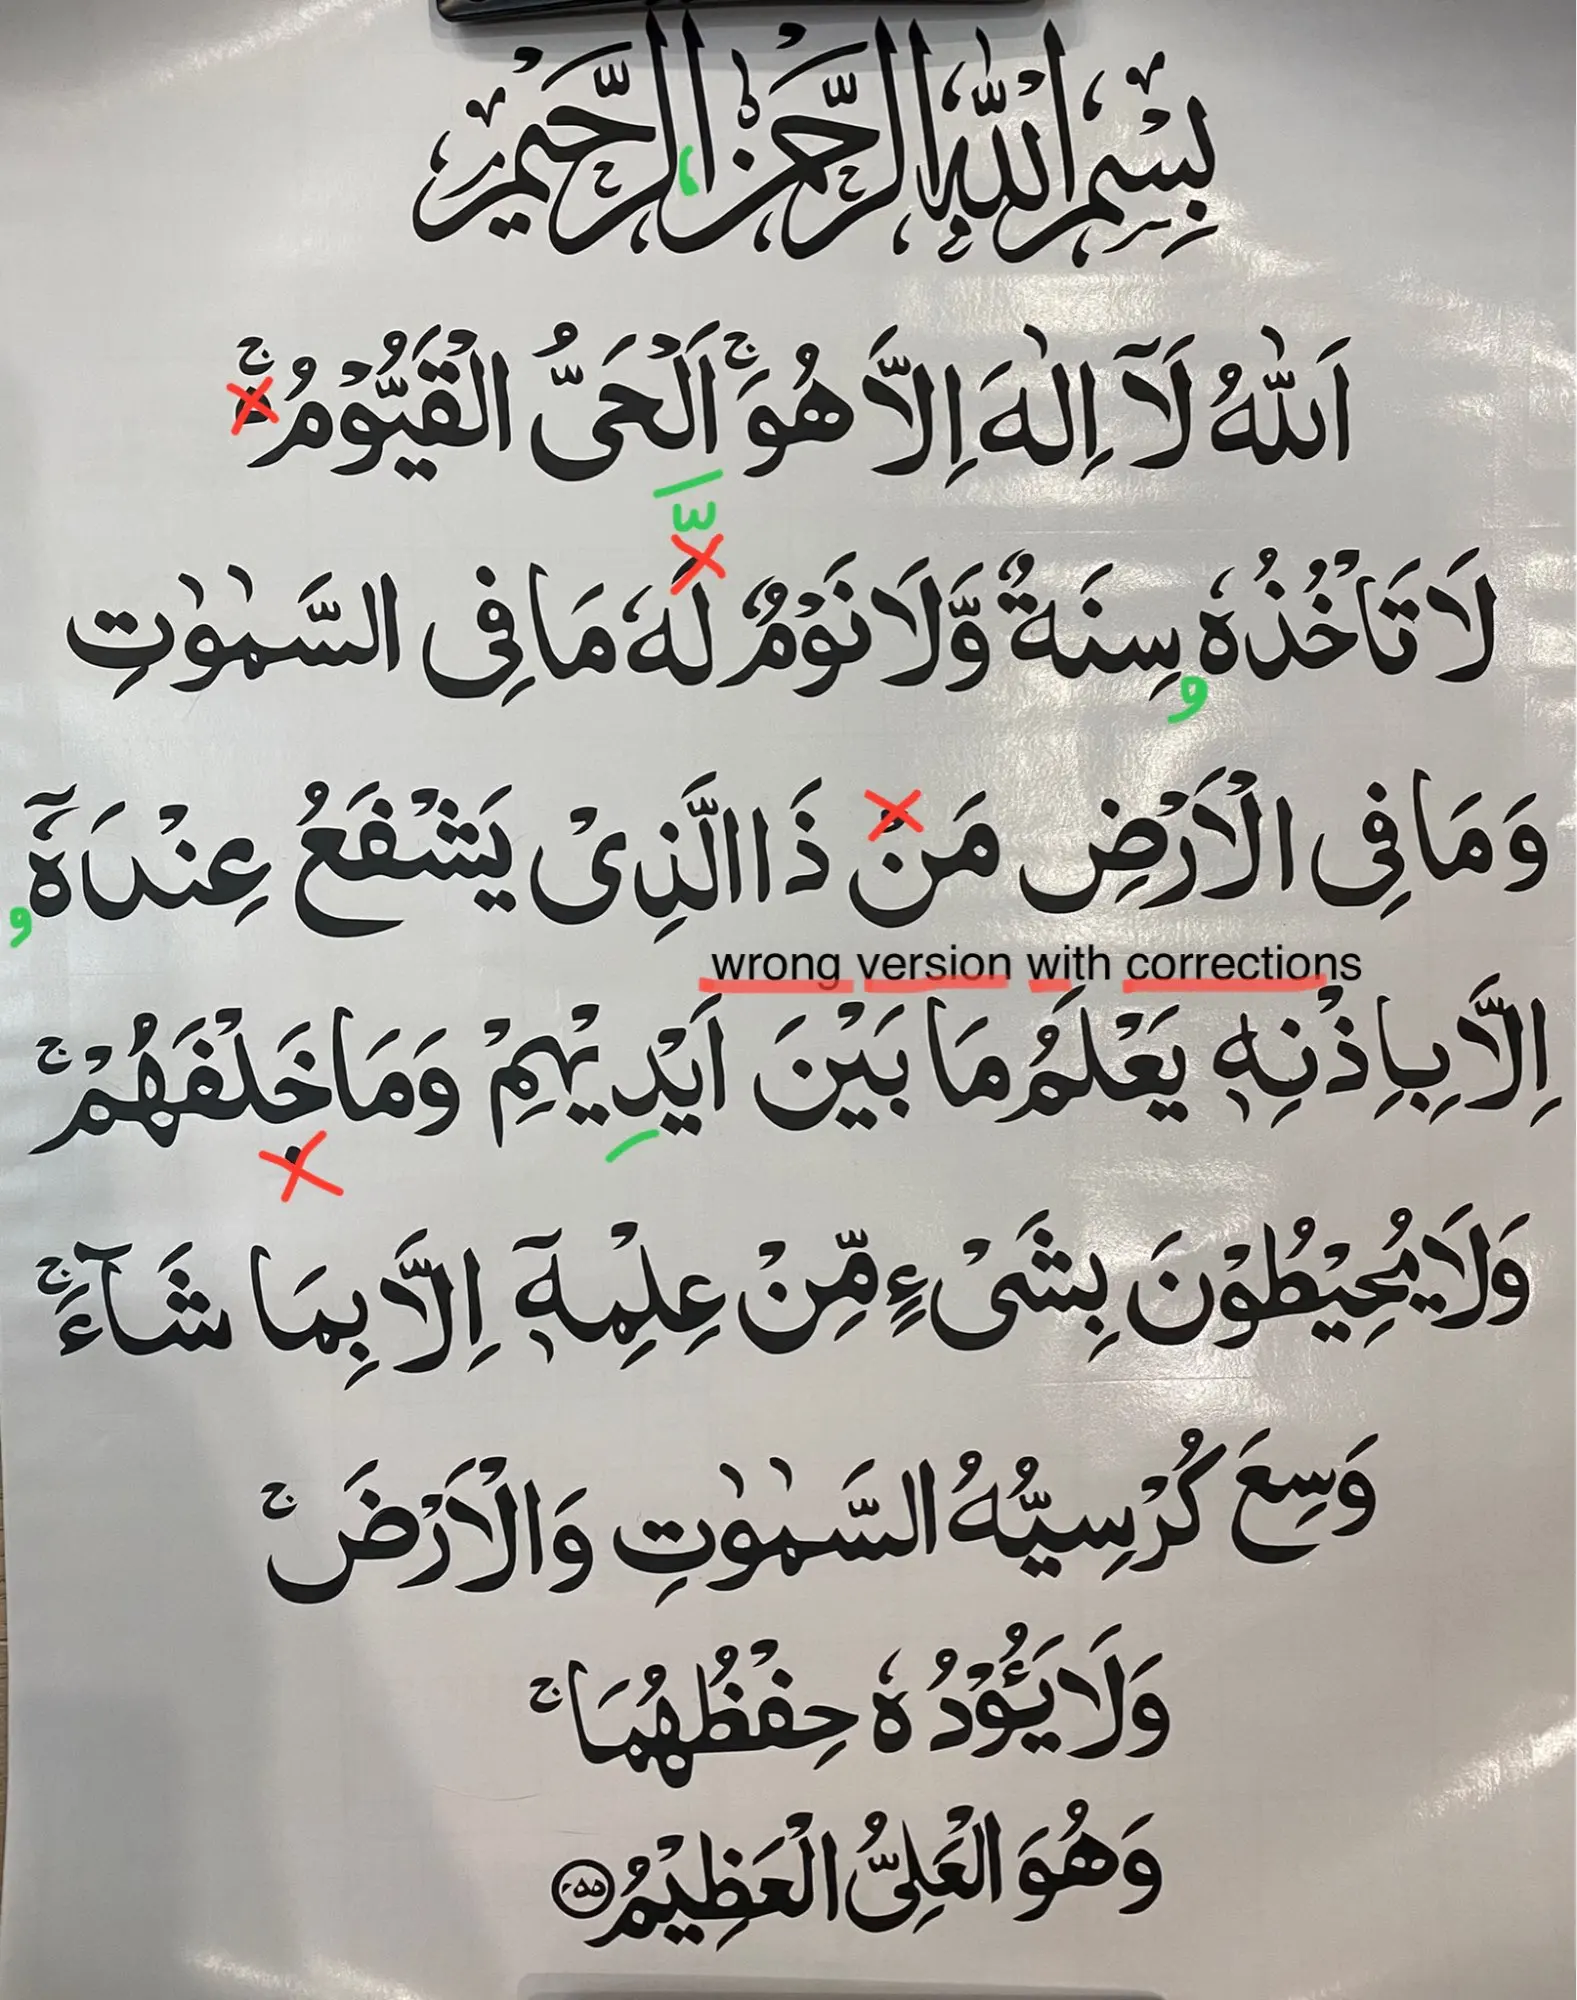 بِسْمِ اللّٰهِ الرَّحْمٰنِ الرَّحِيْمِ
اَللّٰهُ لَآ اِلٰهَ اِلَّا هُوَ ۚ اَلْحَىُّ الْقَيُّوْمُ ۚ
لَا تَاْخُذُهٗ سِنَةٌ وَّلَا نَوْمٌ لَهٗ مَا فِى السَّمٰوٰتِ
وَمَا فِى الْاَرْضِ مَنْ ذَا الَّذِىْ يَشْفَعُ عِنْدَهٗٓ
wrong version with corrections
اِلَّا بِاِذْنِهٖ يَعْلَمُ مَا بَيْنَ اَيْدِيْهِمْ وَمَا خَلْفَهُمْ ۚ
وَلَا يُحِيْطُوْنَ بِشَىْءٍ مِّنْ عِلْمِهٖٓ اِلَّا بِمَا شَآءَ ۚ
وَسِعَ كُرْسِيُّهُ السَّمٰوٰتِ وَالْاَرْضَ ۚ
وَلَا يَـُٔوْدُهٗ حِفْظُهُمَا ۚ
وَهُوَ الْعَلِىُّ الْعَظِيْمُ